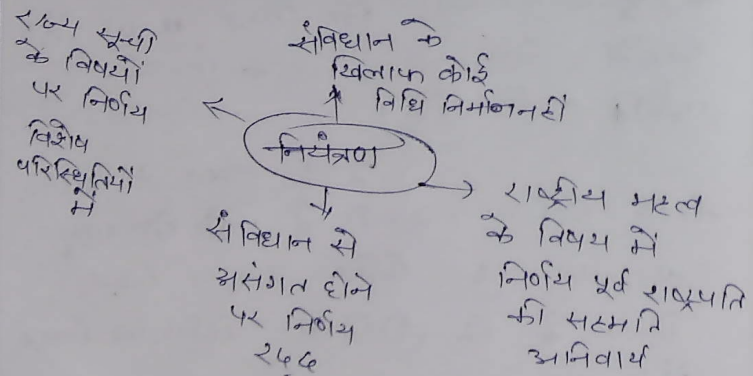 राज्य सूची
के विषयों
पर निर्णय
विशेष
परिस्थितियों
में
संविधान के
खिलाफ कोई
विधि निर्माण नहीं
नियंत्रण
संविधान से
असंगत होने
पर निर्णय
रद्द
राष्ट्रीय महत्व
के विषय में
निर्णय पूर्व राष्ट्रपति
की सहमति
अनिवार्य